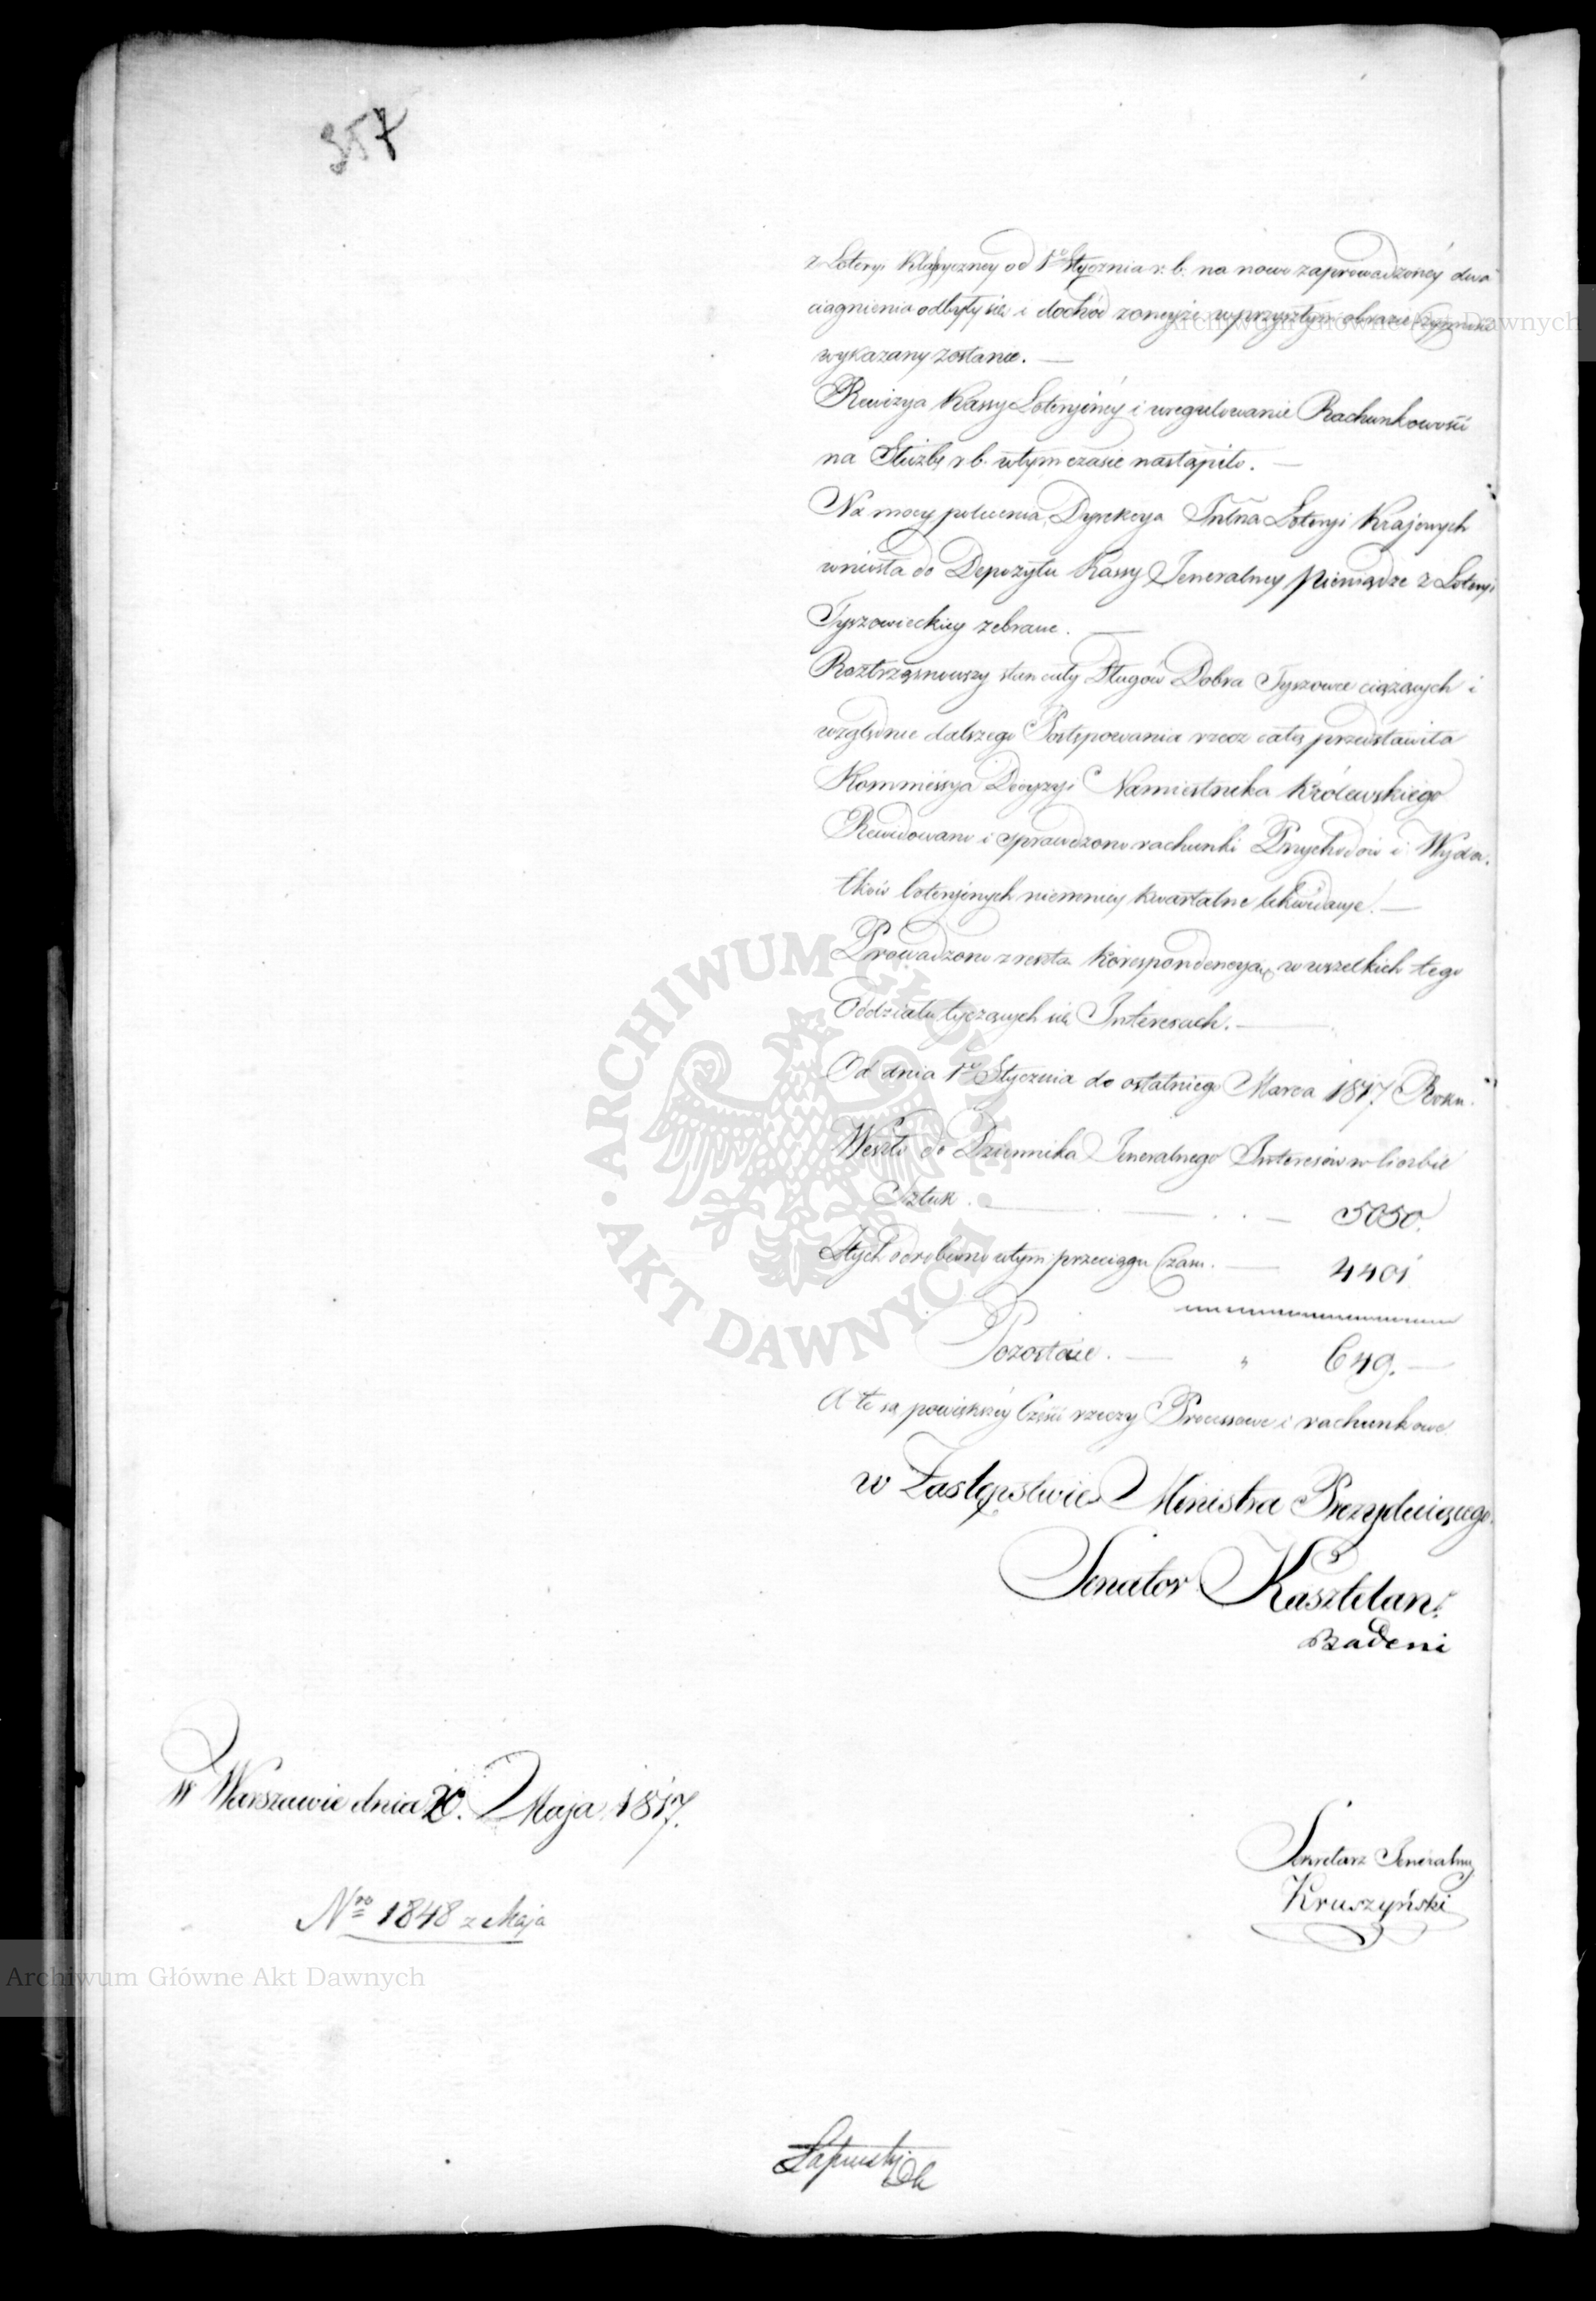 357
z Loteryi Klassyczney od 1go Stycznia r. b. na nowo zaprowadzoney dwa
ciągnienia odbyły się i dochód z oneyże w przyszłym obrazie czynności
wykazany zostanie. —
Rewizya Kassy Loteryiney i uregulowanie Rachunkowości
na Służbę r b. w tym czasie nastąpiło. —
Na mocy polecenia, Dyrekcya Jnlna Loteryi Krajowych
wniosła do Depozytu Kassy Jeneralney pieniądze z Loteryi
Tyszowieckiey zebrane. —
Roztrząsnowszy stan cały Długów Dobra Tyszowce ciążących i
względnie dalszego Postępowania rzecz całą przedstawiła
Kommissya Decyzyi Namiestnika Królewskiego
Rewidowano i sprawdzono rachunki Przychodów i Wyda-
tków loteryinych niemniey kwartalne likwidacye. —
Prowadzono zresztą korespondencyą w wszelkich tego
Oddziału tyczących się Interesach. —
Od dnia 1go Stycznia do ostatniego Marca 1817 Roku.
Weszło do Dziennika Jeneralnego Interesów w liczbie
Sztuk. — 5050.
Z tych odrobiono w tym przeciągu Czasu. — 4401
Pozostaie. — " 649. —
A te są powiększey Części rzeczy Processowe i rachunkowe.
w Zastępstwie Ministra Prezyduiącego.
Senator Kasztelan.
Badeni
W Warszawie dnia 20. Maja 1817.
Sekretarz Jeneralny
Kruszyński
Nro 1848 z Maja
Archiwum Główne Akt Dawnych
Archiwum Główne Akt Dawnych
ARCHIWUM GŁÓWNE AKT DAWNYCH